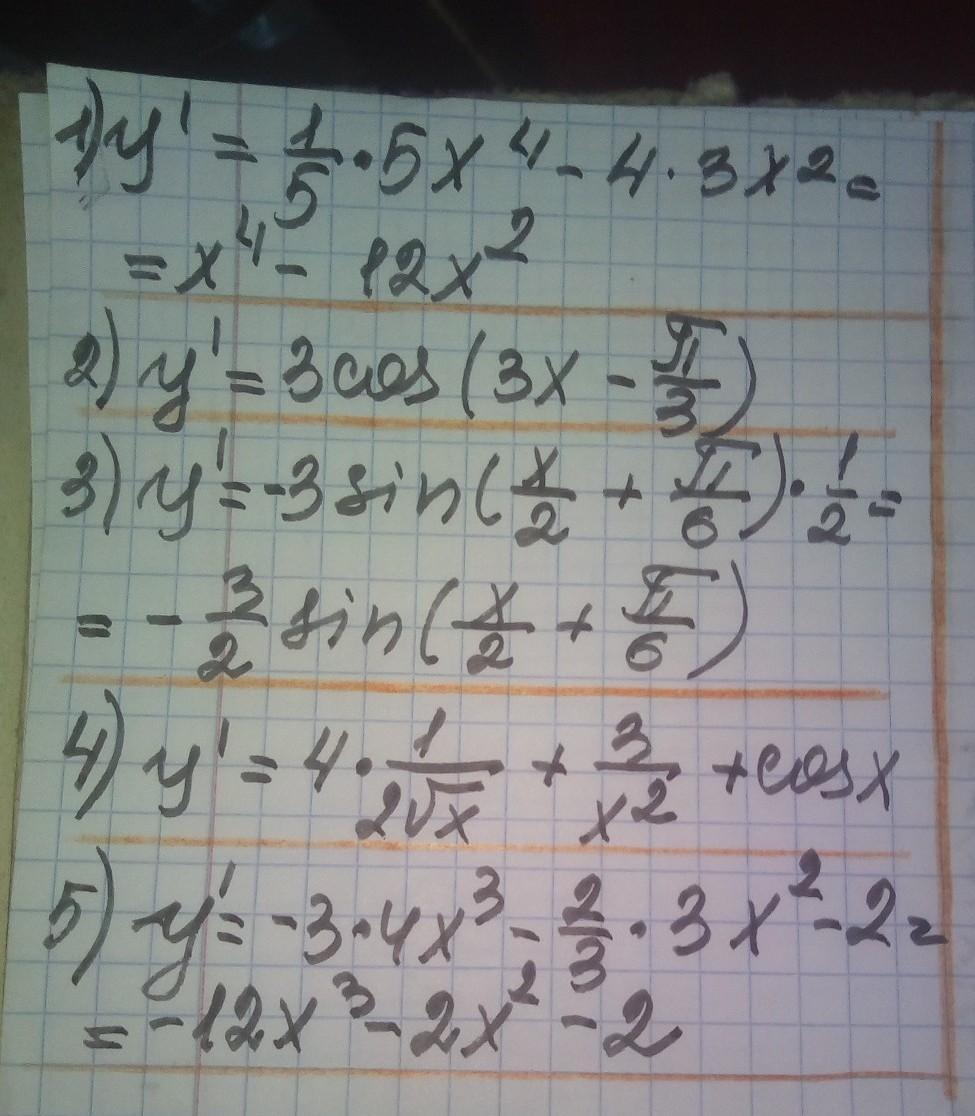 1) y' = 1/5 · 5x⁴ - 4 · 3x² =
= x⁴ - 12x²
2) y' = 3cos(3x - π/3)
3) y' = -3sin(x/2 + π/6) · 1/2 =
= - 3/2 sin(x/2 + π/6)
4) y' = 4 · 1/(2√x) + 3/x² + cosx
5) y' = -3 · 4x³ - 2/3 · 3x² - 2 =
= -12x³ - 2x² - 2